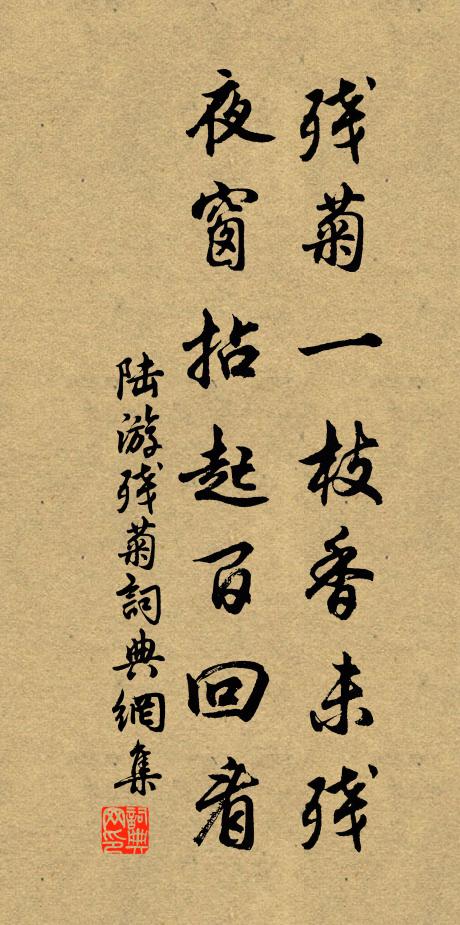 残菊一枝香未残
夜窗拈起百回看
陆游残菊詞典網集
詞典网印